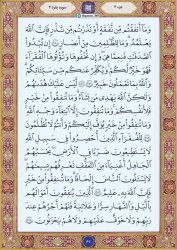 وَمَا أَنفَقْتُم مِّن نَّفَقَةٍ أَوْ نَذَرْتُم مِّن نَّذْرٍ فَإِنَّ اللَّهَ
يَعْلَمُهُ وَمَا لِلظَّالِمِينَ مِنْ أَنصَارٍ إِن تُبْدُوا
الصَّدَقَاتِ فَنِعِمَّا هِيَ وَإِن تُخْفُوهَا وَتُؤْتُوهَا الْفُقَرَاءَ
فَهُوَ خَيْرٌ لَّكُمْ وَيُكَفِّرُ عَنكُم مِّن سَيِّئَاتِكُمْ
وَاللَّهُ بِمَا تَعْمَلُونَ خَبِيرٌ لَّيْسَ عَلَيْكَ هُدَاهُمْ
وَلَكِنَّ اللَّهَ يَهْدِي مَن يَشَاءُ وَمَا تُنفِقُوا مِنْ خَيْرٍ
فَلِأَنفُسِكُمْ وَمَا تُنفِقُونَ إِلَّا ابْتِغَاءَ وَجْهِ اللَّهِ
وَمَا تُنفِقُوا مِنْ خَيْرٍ يُوَفَّ إِلَيْكُمْ وَأَنتُمْ لَا تُظْلَمُونَ
لِلْفُقَرَاءِ الَّذِينَ أُحْصِرُوا فِي سَبِيلِ اللَّهِ
لَا يَسْتَطِيعُونَ ضَرْبًا فِي الْأَرْضِ يَحْسَبُهُمُ
الْجَاهِلُ أَغْنِيَاءَ مِنَ التَّعَفُّفِ تَعْرِفُهُم بِسِيمَاهُمْ
لَا يَسْأَلُونَ النَّاسَ إِلْحَافًا وَمَا تُنفِقُوا مِنْ خَيْرٍ
فَإِنَّ اللَّهَ بِهِ عَلِيمٌ الَّذِينَ يُنفِقُونَ أَمْوَالَهُم
بِاللَّيْلِ وَالنَّهَارِ سِرًّا وَعَلَانِيَةً فَلَهُمْ أَجْرُهُمْ عِندَ
رَبِّهِمْ وَلَا خَوْفٌ عَلَيْهِمْ وَلَا هُمْ يَحْزَنُونَ